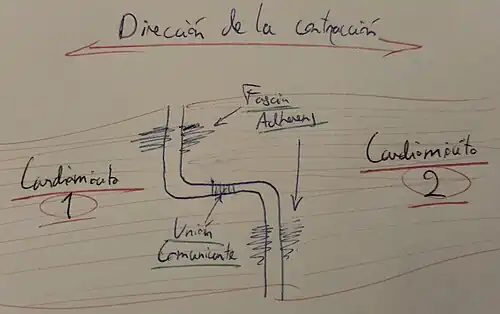 Dirección de la contracción
Fascia
Adherens
Cardiomiocito
1
Cardiomiocito
2
Unión
Comunicante